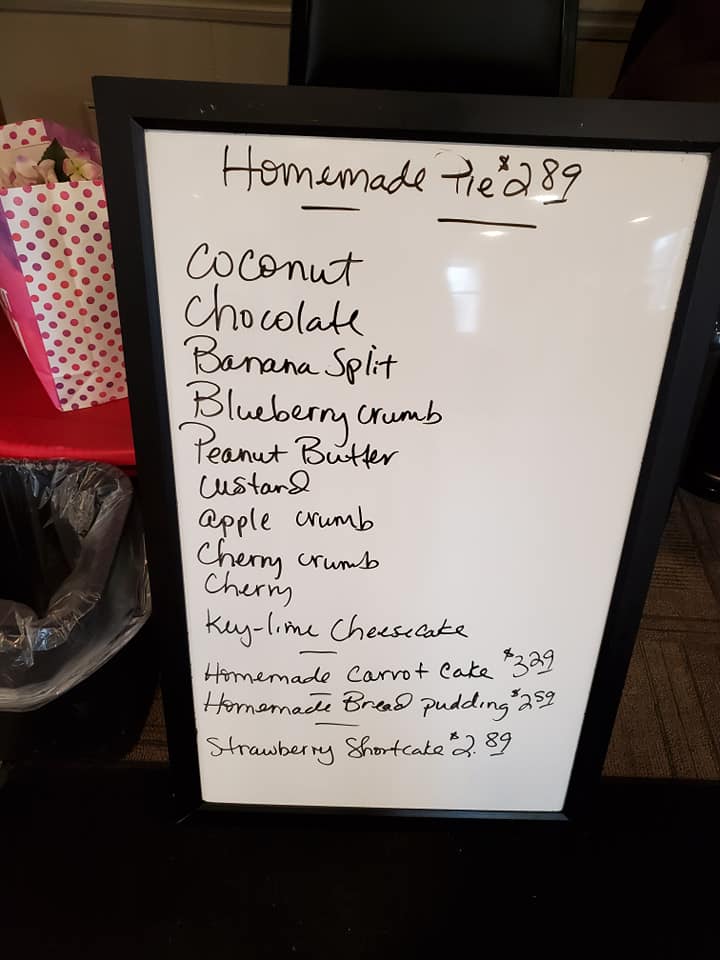 Homemade Pie $2 89
Coconut
Chocolate
Banana Split
Blueberry crumb
Peanut Butter
Custard
apple crumb
Cherry crumb
Cherry
Key-lime Cheesecake
Homemade Carrot Cake $3 29
Homemade Bread pudding $2 59
Strawberry Shortcake $2.89